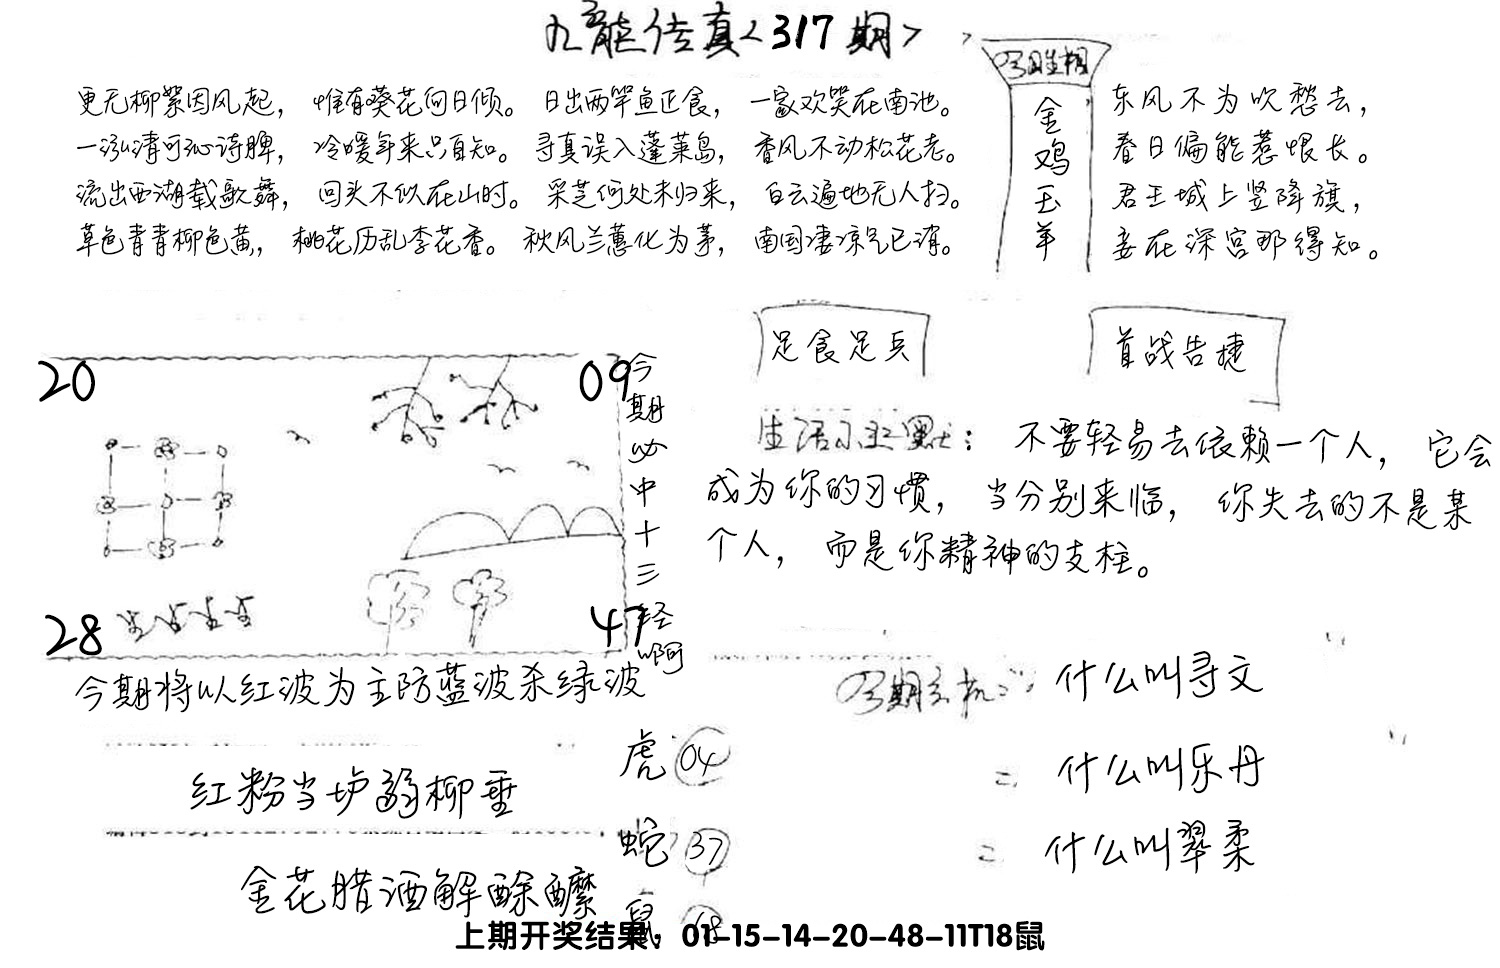 九龙传真<317期>
更无柳絮因风起，惟有葵花向日倾。日出两竿鱼正食，一家欢笑在南池。
一泓清可沁诗脾，冷暖年来只自知。寻真误入蓬莱岛，香风不动松花老。
流出西湖载歌舞，回头不似在山时。采芝何处未归来，白云遍地无人扫。
草色青青柳色黄，桃花历乱李花香。秋风兰蕙化为茅，南国凄凉气已消。
今期生相
金鸡玉羊
东风不为吹愁去，
春日偏能惹恨长。
君王城上竖降旗，
妾在深宫那得知。
足食足兵
首战告捷
20
09
28
47
今期必中十三轻啊
生活小幽默：不要轻易去依赖一个人，它会
成为你的习惯，当分别来临，你失去的不是某
个人，而是你精神的支柱。
今期将以红波为主防蓝波杀绿波
红粉当垆弱柳垂
金花腊酒解酴醾
虎 04
蛇 37
鼠 18
今期玄机：什么叫寻文
= 什么叫乐丹
= 什么叫翠柔
上期开奖结果：01-15-14-20-48-11T18鼠